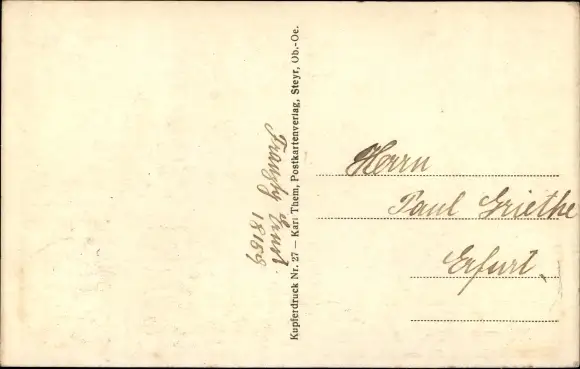 Kupferdruck Nr. 27 — Karl Them, Postkartenverlag, Steyr, Ob.-Oe.
18159
Herrn
Paul Griethe
Erfurt.